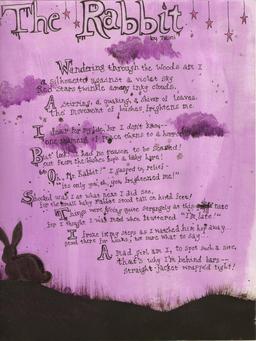 The Rabbit
Wandering through the woods am I
a silhouette against a violet sky
Red stars twinkle among inky clouds.
A stirring, a quaking, a shiver of leaves.
the movement of bushes frightens me.
I fear for my life, for I don't know
But had me no reason to be scared!
out from the bushes hops a baby hare!
"Oh, Mr. Rabbit!" I gasped in relief-
"its only you, oh, you frightened me!"
Shocked was I at what next I did see,
for the small baby rabbit stood tall on hind feet!
Things were going quite strangely as this
for I thought I was mad when it uttered "I'm late!"
I froze in my steps as I watched him hop away
stood there for hours, not sure what to say...
A mad girl am I, to spot such a site,
that's why I'm behind bars--
straight-jacket wrapped tight!